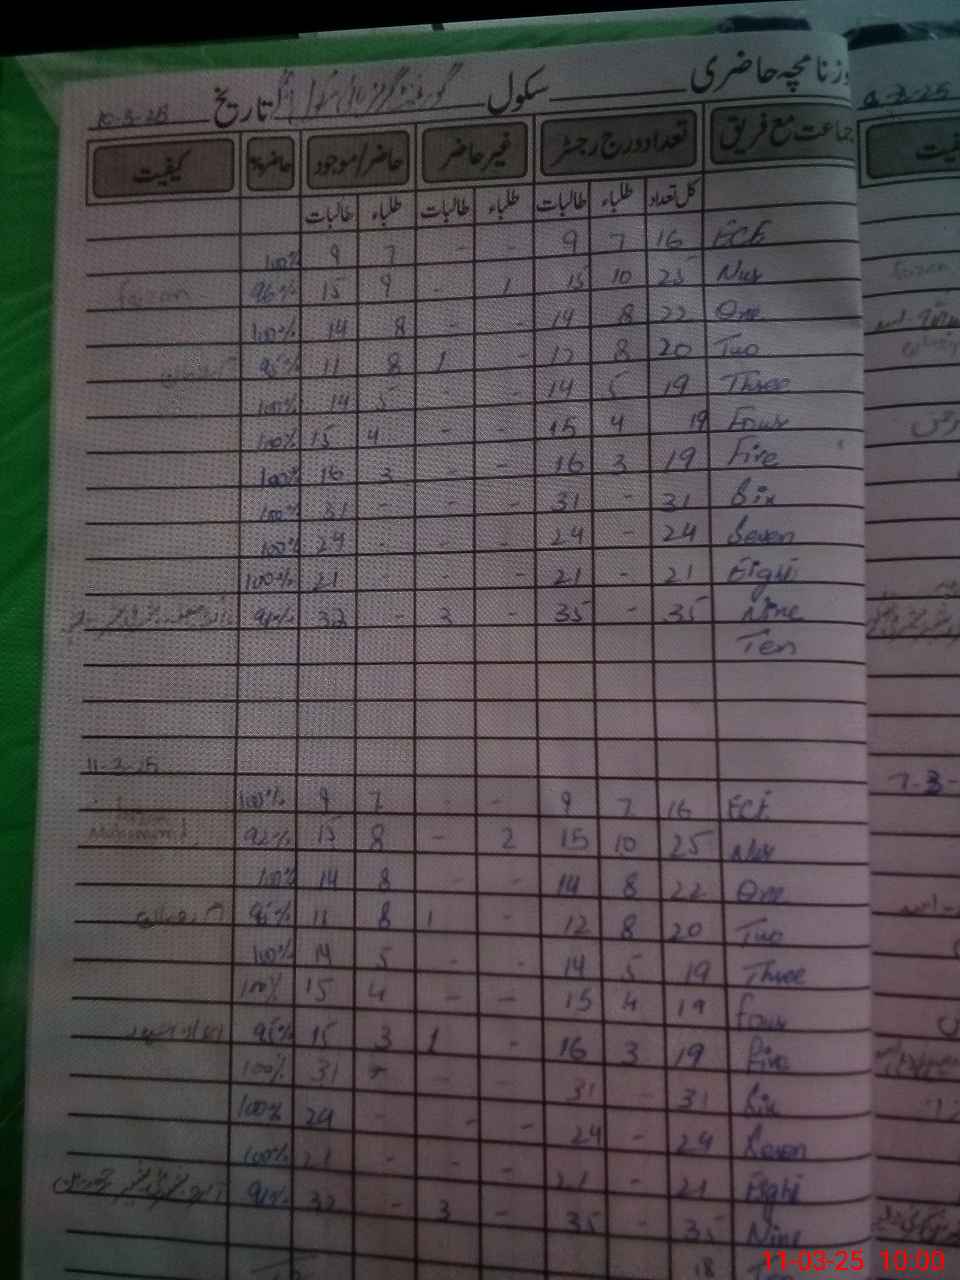 روزنامچہ حاضری ــــــ سکول گورنمنٹ گرلز ہائی سکول تاریخ 10-3-25
جماعت مع فریق تعداد درج رجسٹر غیر حاضر حاضر/موجود حاضر% کیفیت
کل تعداد طلباء طالبات طلباء طالبات طلباء طالبات
ECE 16 7 9 - - 7 9 100%
Nur 25 10 15 1 - 9 15 96% faizan
One 22 8 14 - - 8 14 100%
Two 20 8 12 - 1 8 11 95%
Three 19 5 14 - - 5 14 100%
Four 19 4 15 - - 4 15 100%
Five 19 3 16 - - 3 16 100%
Six 31 - 31 - - - 31 100%
Seven 24 - 24 - - - 24 100%
Eight 21 - 21 - - - 21 100%
Nine 35 - 35 - 3 - 32 91%
Ten
11-3-25
ECE 16 7 9 - - 7 9 100%
Nur 25 10 15 2 - 8 15 92% Mohammad
One 22 8 14 - - 8 14 100%
Two 20 8 12 - 1 8 11 95%
Three 19 5 14 - - 5 14 100%
Four 19 4 15 - - 4 15 100%
Five 19 3 16 - 1 3 15 95%
Six 31 - 31 - - - 31 100%
Seven 24 - 24 - - - 24 100%
Eight 21 - 21 - - - 21 100%
Nine 35 - 35 - 3 - 32 91%
18
7-3-
11-03-25 10:00